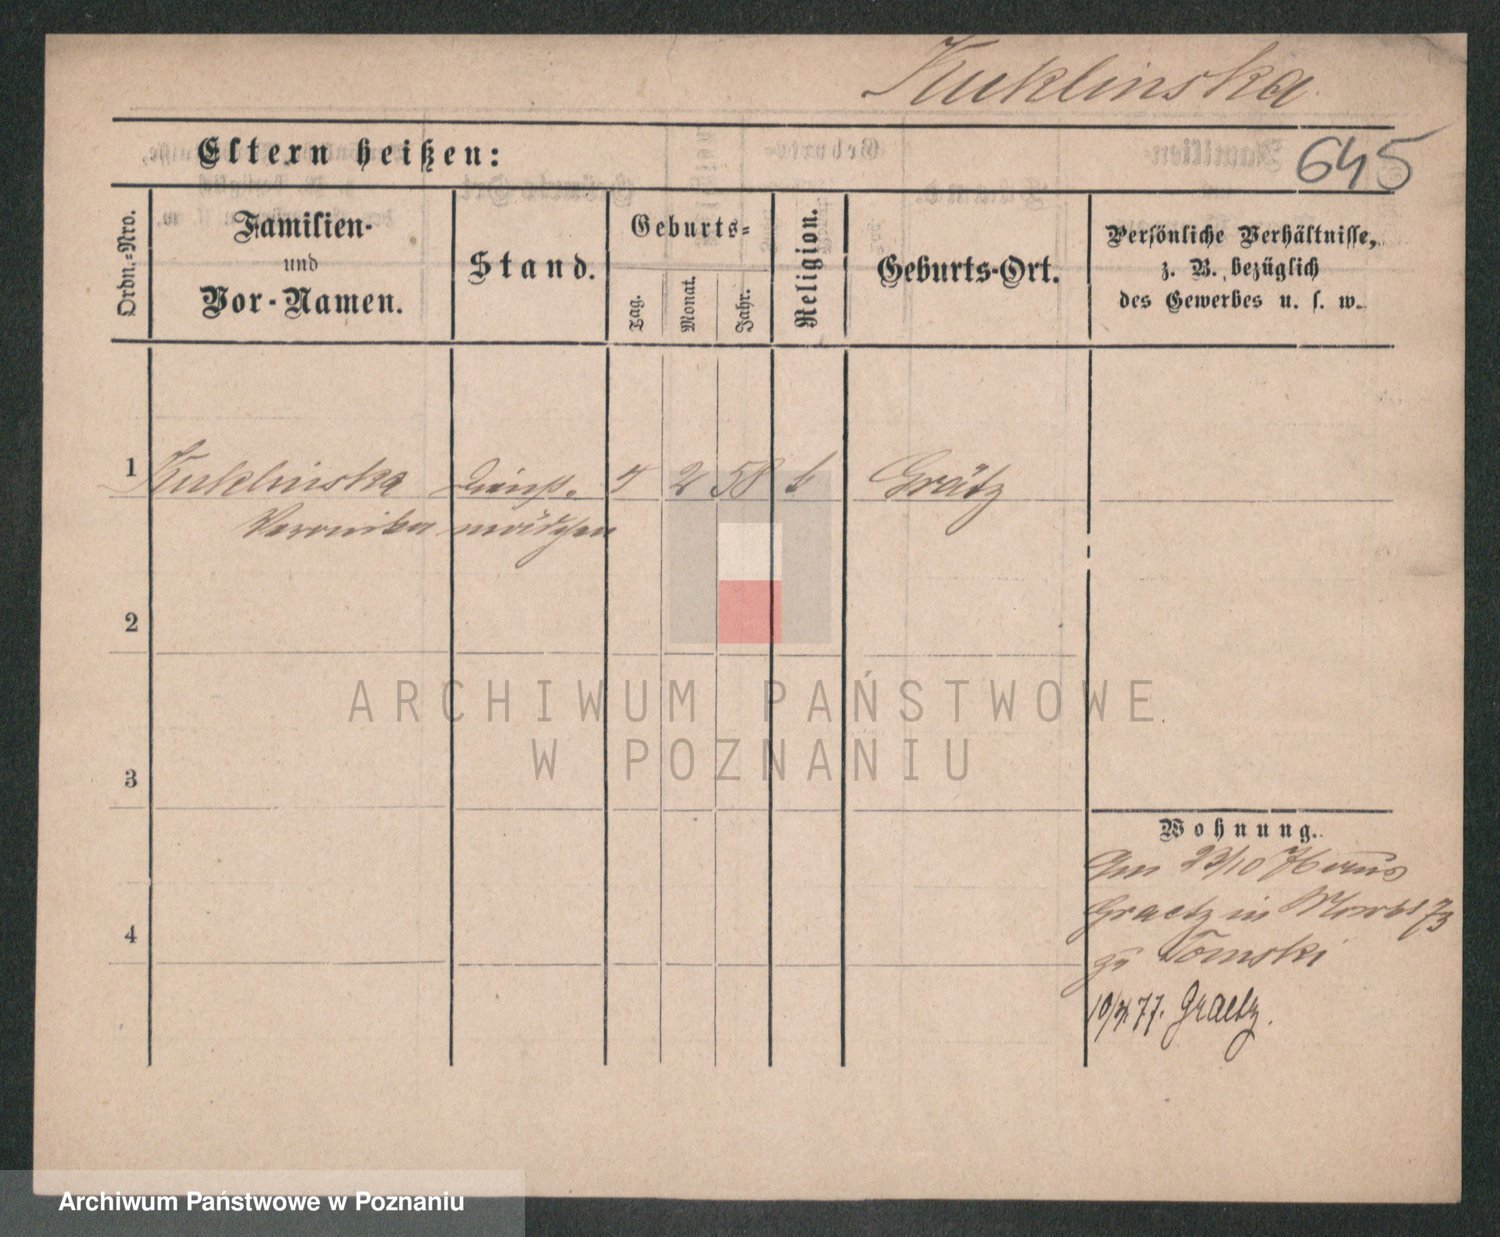 Kuklinska
Eltern heißen:
645
Ordn.-Nro.
Familien-
und
Vor-Namen.
Stand.
Geburts-
Tag.
Monat.
Jahr.
Religion.
Geburts-Ort.
Persönliche Verhältnisse,
z. B. bezüglich
des Gewerbes u. s. w.
1
Kuklinska Dienst- 4 2 58 k Grätz
Veronika mädchen
2
3
4
Wohnung.
Am 23/10 76 aus
Graetz in 73
zu Tomski
77. Graetz.
ARCHIWUM PAŃSTWOWE
W POZNANIU
Archiwum Państwowe w Poznaniu